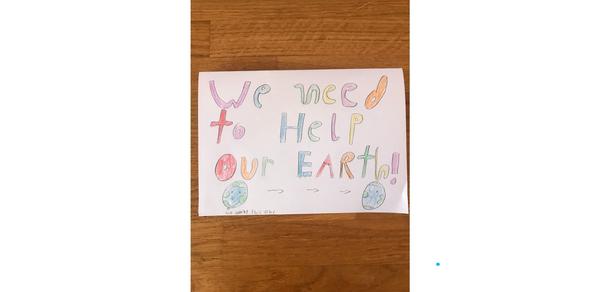 We need
to Help
our EARth!